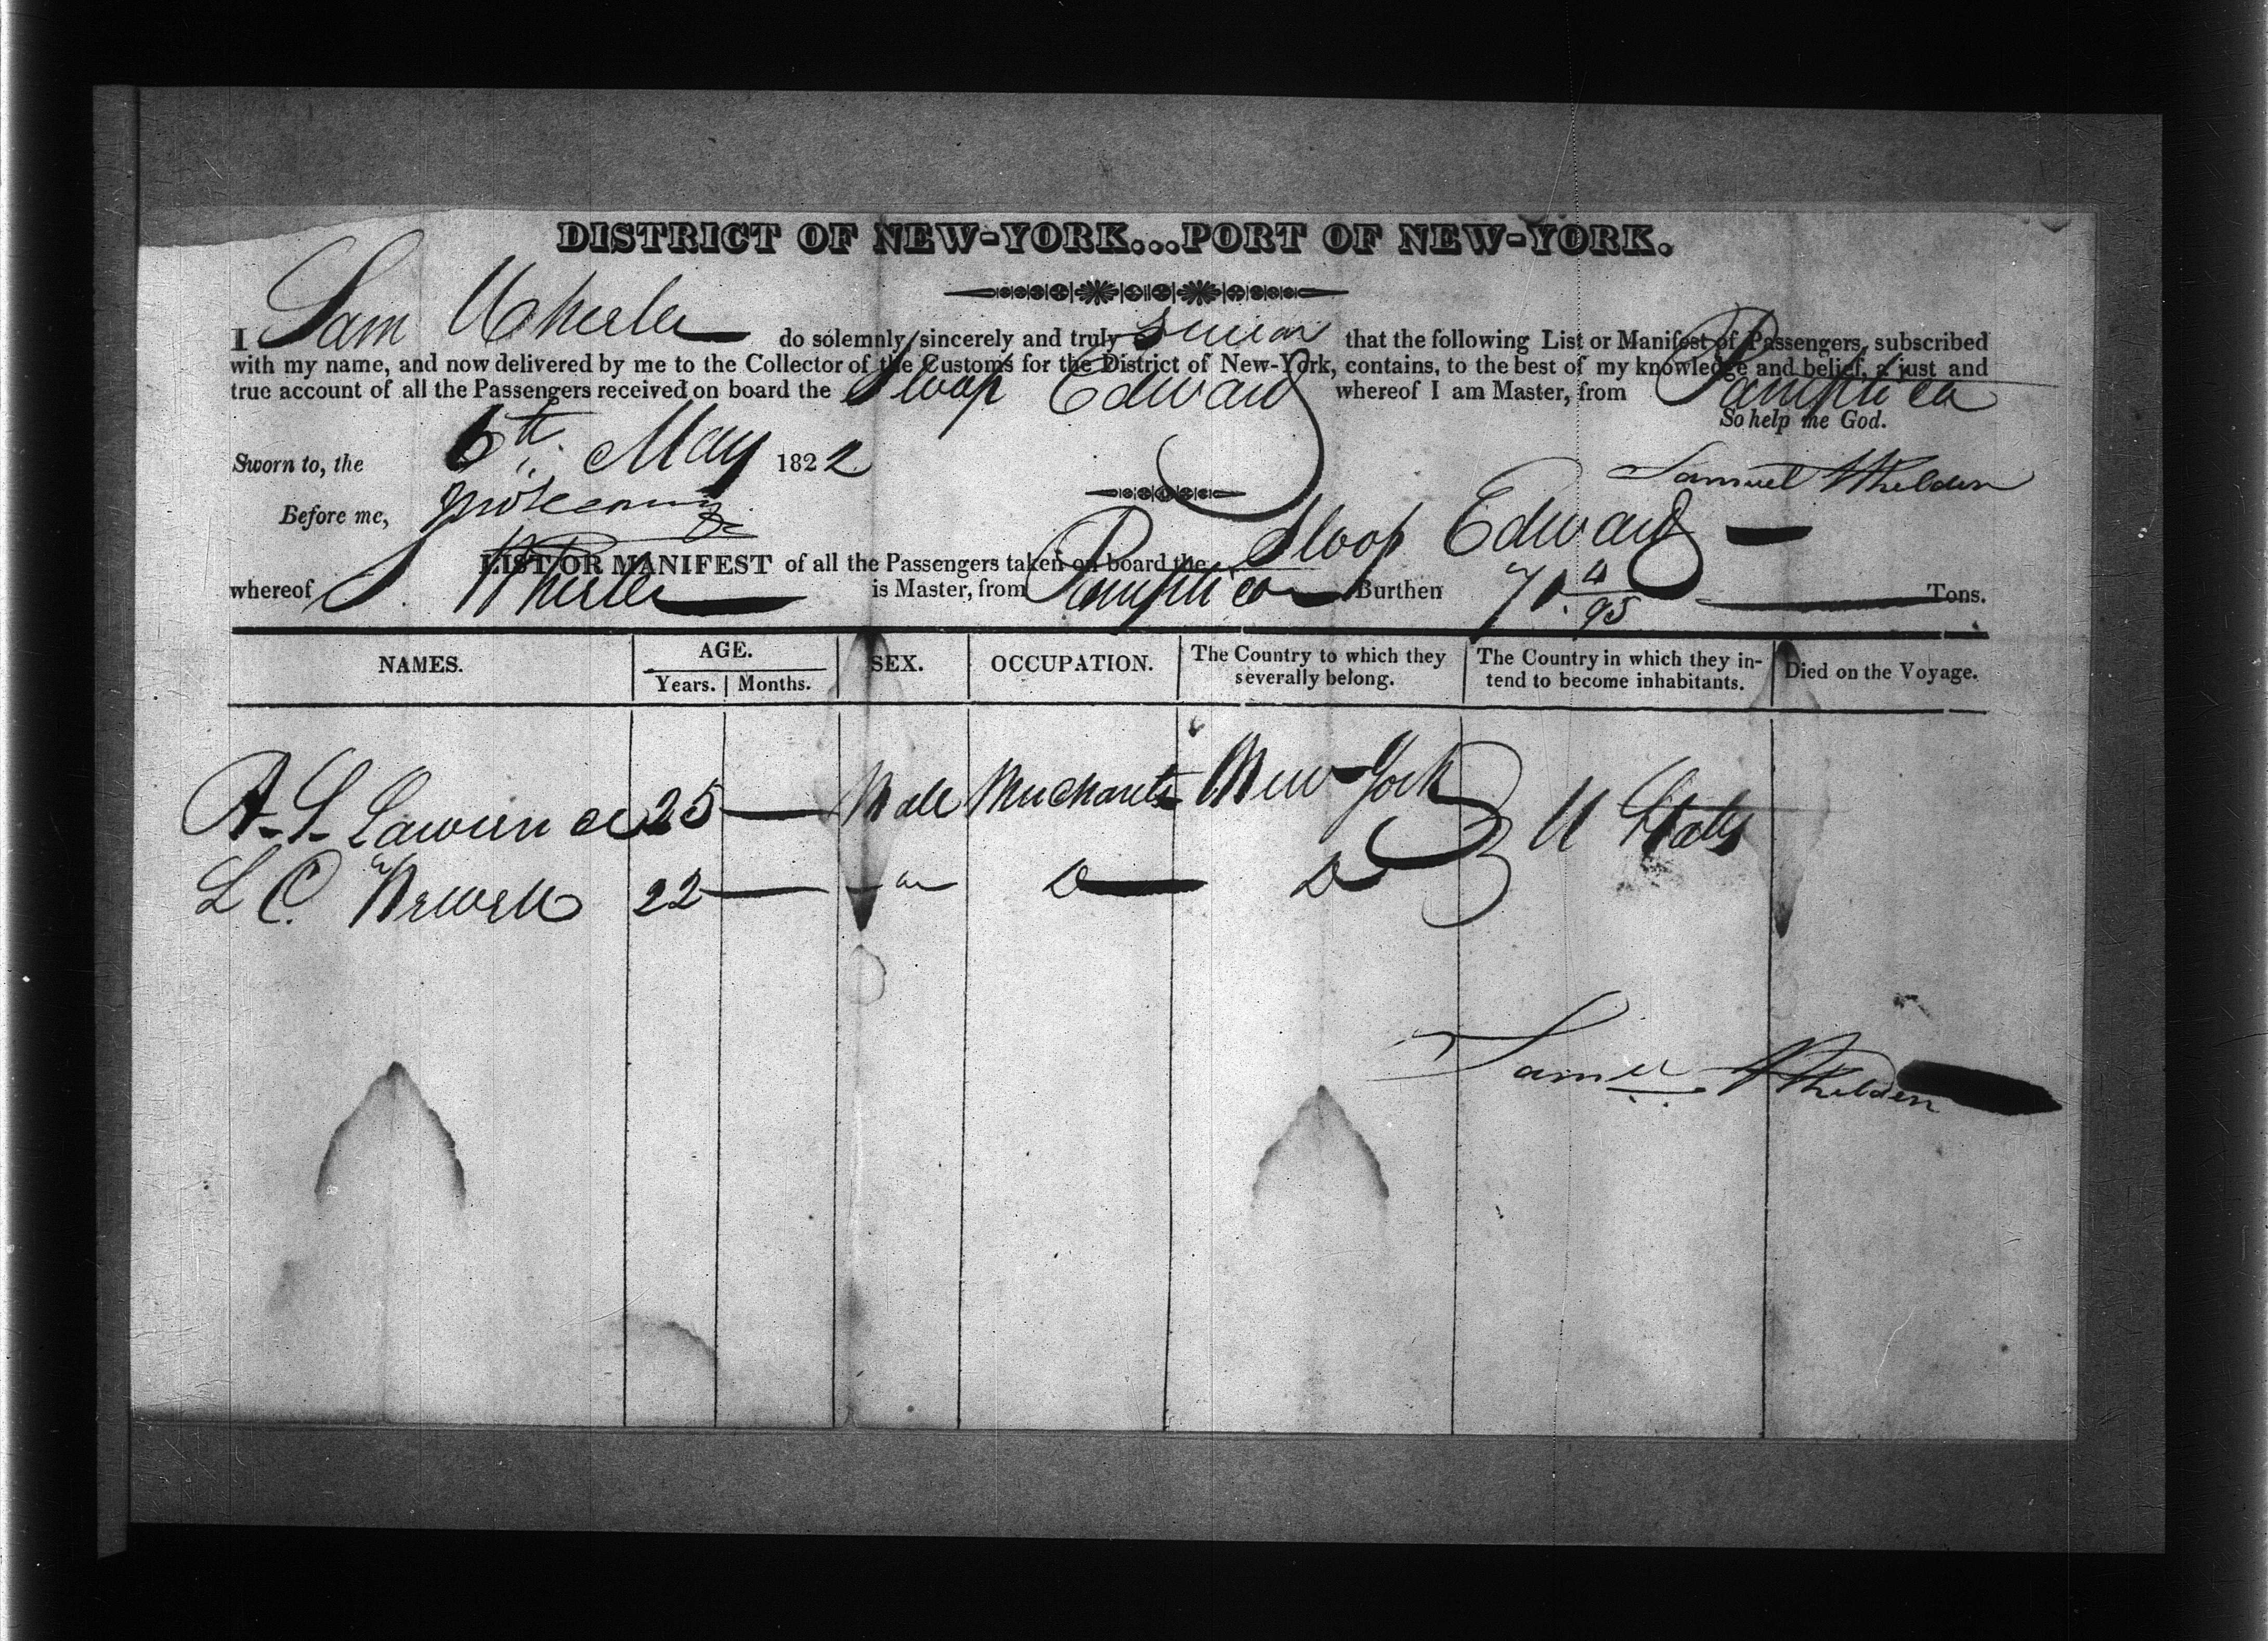 DISTRICT OF NEW-YORK...PORT OF NEW-YORK.
I Sam Wheeler do solemnly, sincerely and truly swear that the following List or Manifest of Passengers, subscribed
with my name, and now delivered by me to the Collector of the Customs for the District of New-York, contains, to the best of my knowledge and belief, a just and
true account of all the Passengers received on board the Sloop Edward whereof I am Master, from
So help me God.
Sworn to, the 6th May 1822
Samuel Whelden
Before me,
LIST OR MANIFEST of all the Passengers taken on board the Sloop Edward
whereof S. is Master, from Burthen 71 4/95 Tons.
NAMES. AGE. SEX. OCCUPATION. The Country to which they severally belong. The Country in which they intend to become inhabitants. Died on the Voyage.
Years. Months.
A. S. Lawrence 25 Male Merchants New-York U States
L C. Newell 22 Do Do
Samuel Whelden